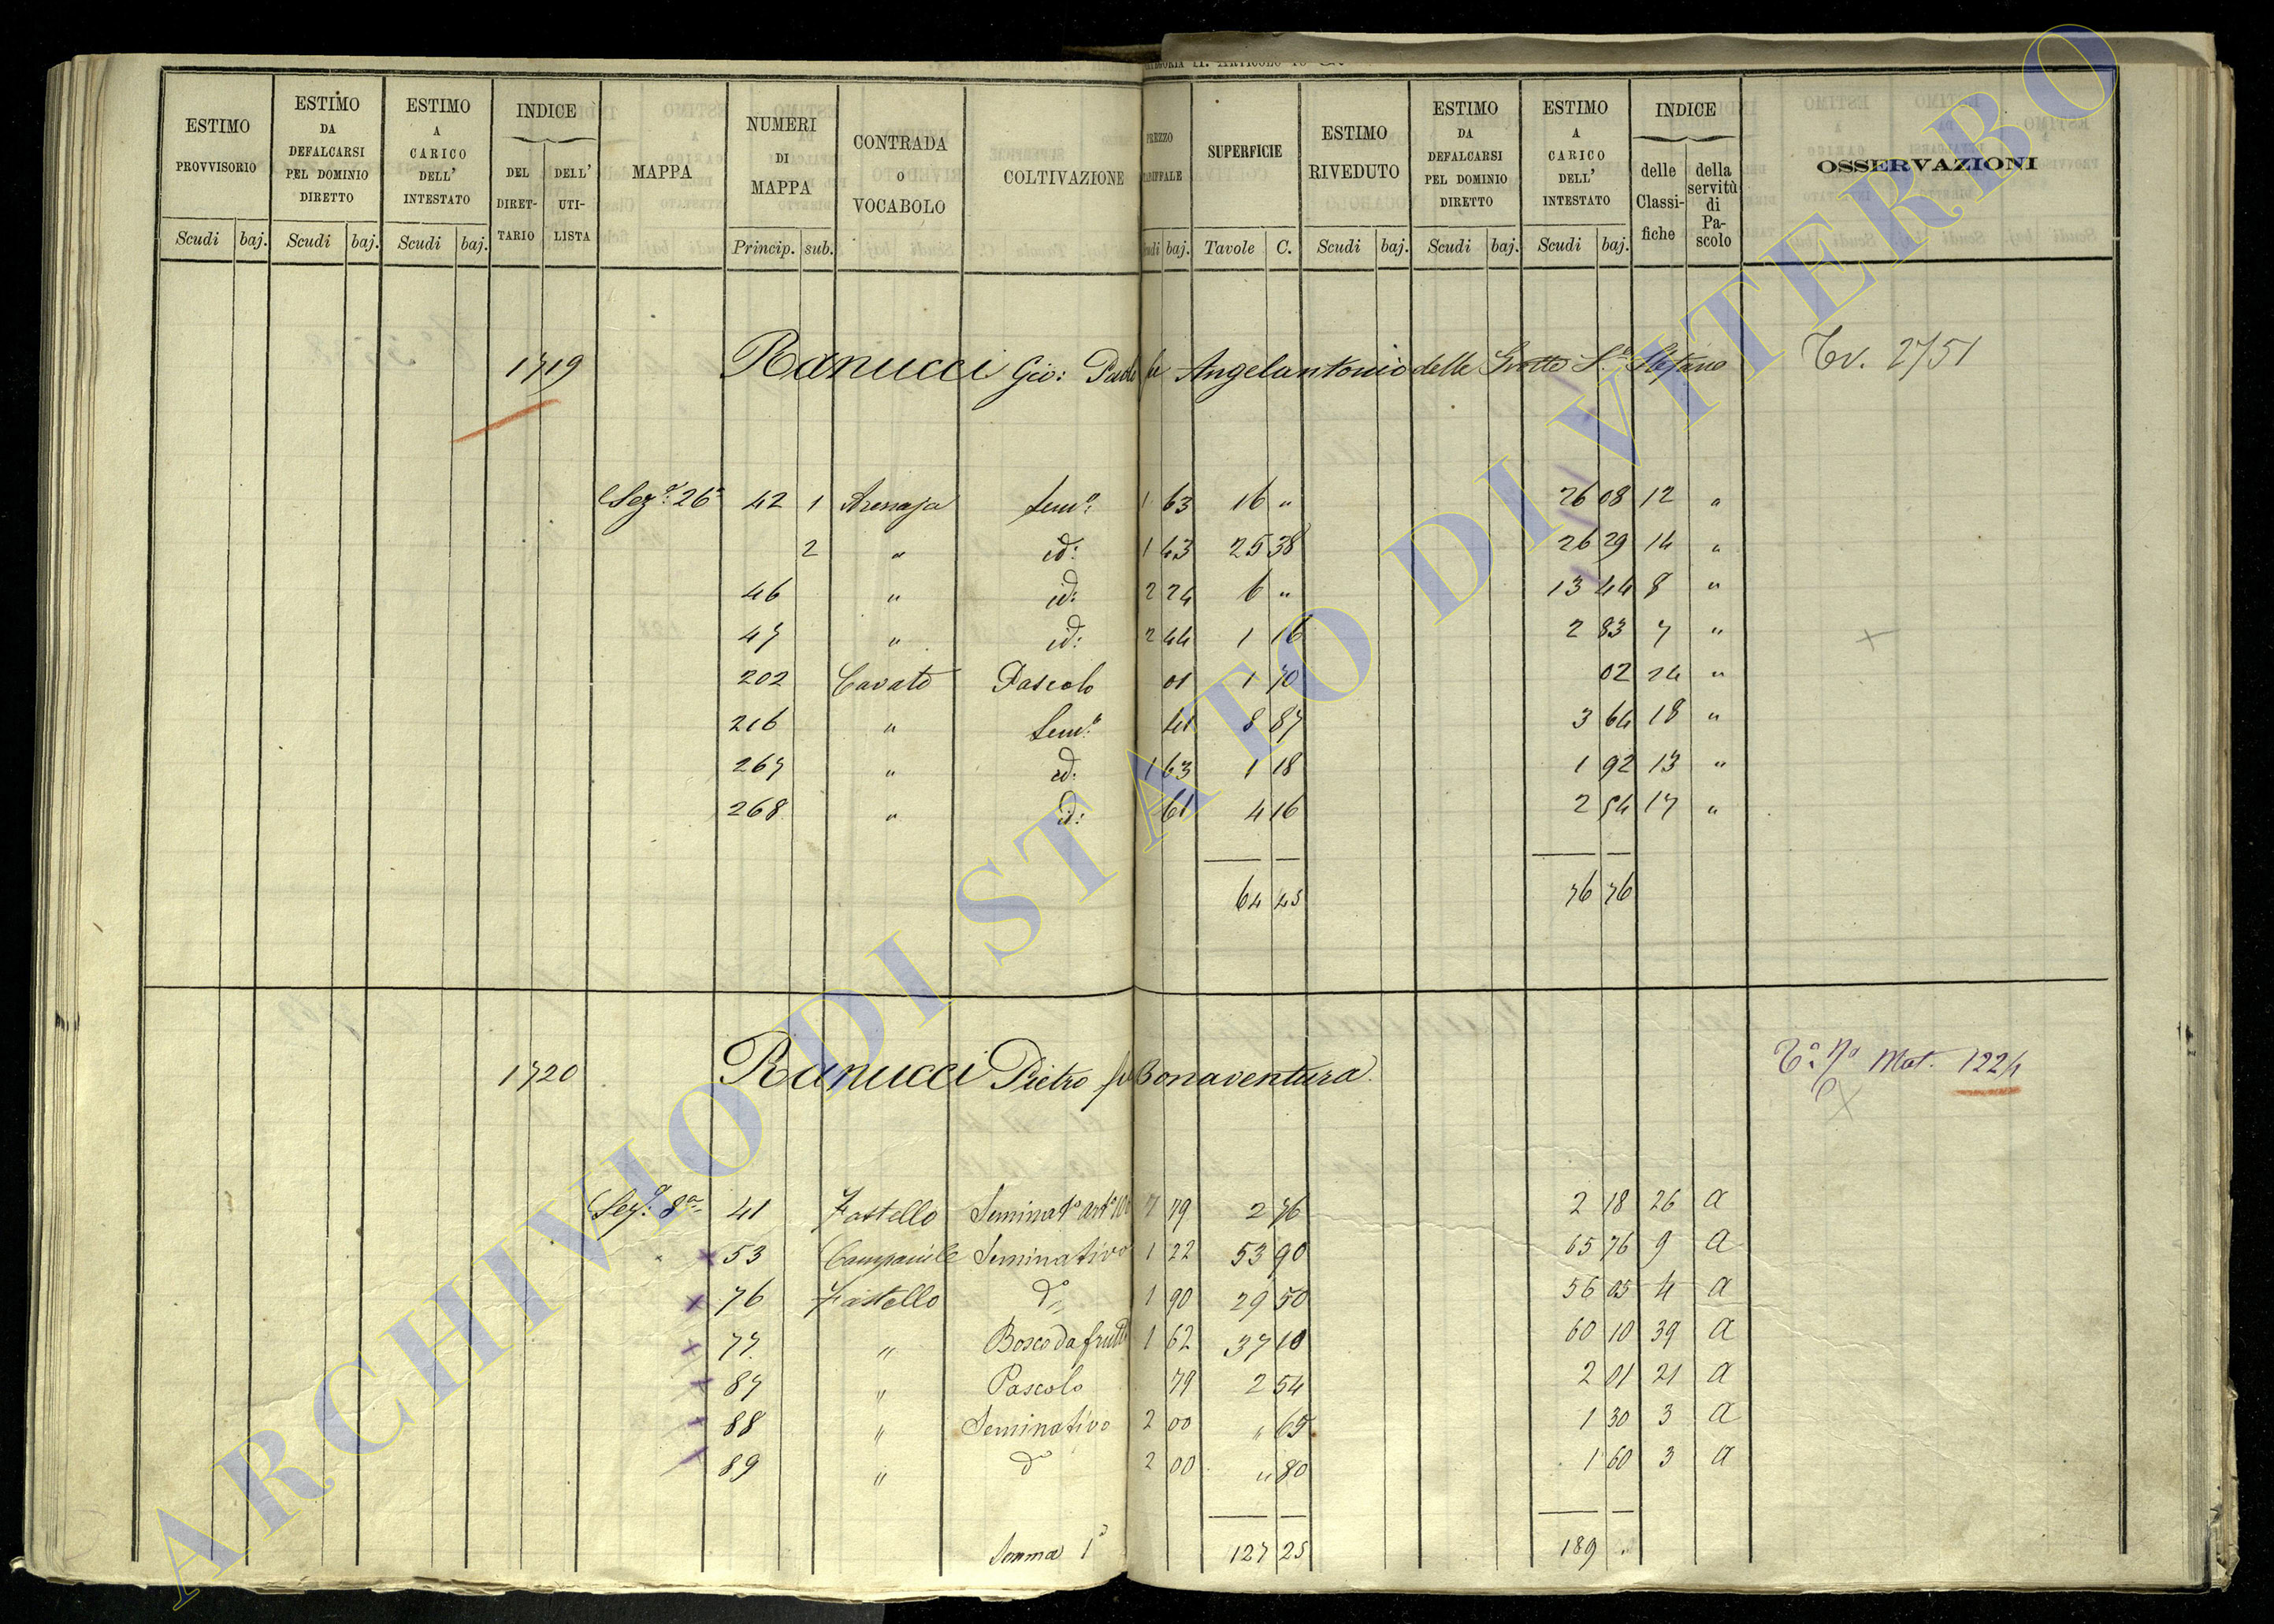 CATEGORIA II. ARTICOLO 10
ESTIMO PROVVISORIO Scudi baj.
ESTIMO DA DEFALCARSI PEL DOMINIO DIRETTO Scudi baj.
ESTIMO A CARICO DELL' INTESTATO Scudi baj.
INDICE DEL DIRET-TARIO DELL' UTI-LISTA
MAPPA
NUMERI DI MAPPA Princip. sub.
CONTRADA O VOCABOLO
COLTIVAZIONE
PREZZO baj.
SUPERFICIE Tavole C.
ESTIMO RIVEDUTO Scudi baj.
ESTIMO DA DEFALCARSI PEL DOMINIO DIRETTO Scudi baj.
ESTIMO A CARICO DELL' INTESTATO Scudi baj.
INDICE delle Classi-fiche della servitù di Pa-scolo
OSSERVAZIONI
1719 Ranucci Gio: Paolo fu Angelantonio delle Grotte S. Stefano Tv. 2751
Sez.e 26a 42 1 Arenaja Sem.o 1 63 16 " 26 08 12 "
2 " id: 1 43 25 38 26 29 14 "
46 " id: 2 24 6 " 13 44 8 "
47 " id: 2 44 1 16 2 83 7 "
202 Cavato Pascolo 01 1 70 02 24 "
216 " Sem.o 41 8 87 3 64 18 "
267 " id: 1 63 1 18 1 92 13 "
268 " id: 61 4 16 2 54 17 "
64 45 76 76
1720 Ranucci Pietro fu Bonaventura Mat. 1224
Sez.e 8a 41 Fastello 79 2 76 2 18 26 a
" 53 Campanile Seminativo 1 22 53 90 65 76 9 a
76 Fastello d° 1 90 29 50 56 05 4 a
77 " Bosco da frutto 1 62 37 10 60 10 39 a
87 " Pascolo 79 2 54 2 01 21 a
88 " Seminativo 2 00 " 65 1 30 3 a
89 " d° 2 00 " 80 1 60 3 a
Somma 1a 127 25 189
ARCHIVIO DI STATO DI VITERBO